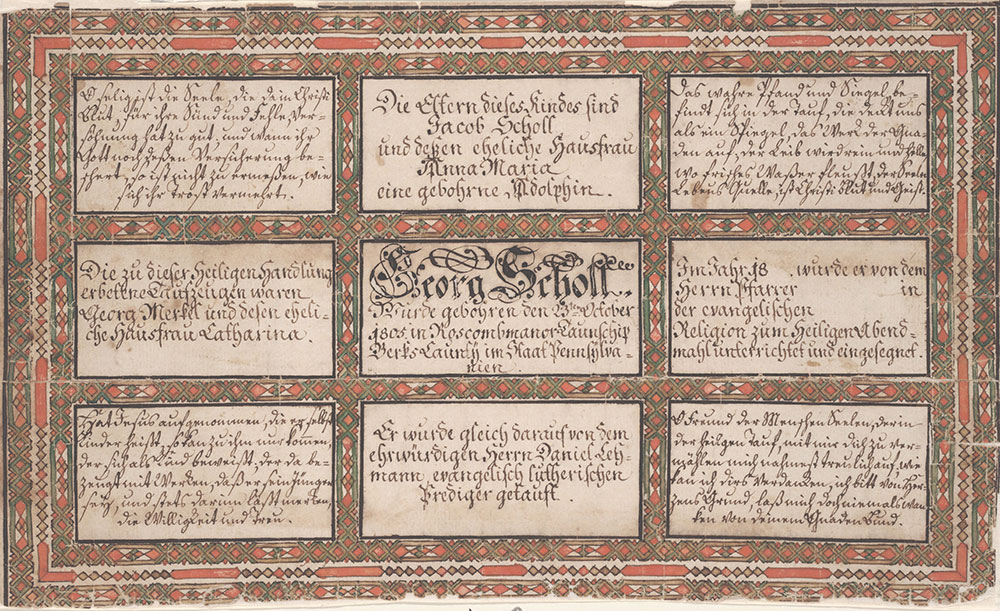 O seelig ist die Seele, die dein Christi
Blut, für ihre Sünd und Fehle, Ver-
söhnung hat zu gut, und wann ihr
Gott noch deßen Versicherung be-
schert, so ist nicht zu ermeßen, wie
sich ihr Trost vermehrt.
Die Eltern dieses Kindes sind
Jacob Scholl
und deßen eheliche Hausfrau
Anna Maria
eine gebohrne Adolphin.
Das wahre Pfand und Siegel, be-
findt sich in der Tauf, die deckt uns
als ein Spiegel, das Werck der Gna-
den auf, der Leib wird rein und helle
wo frisches Waßer fleußt, der Seelen
Lebens Quelle, ist Christi Blut und Geist.
Die zu dieser Heiligen Handlung
erbettne Taufzeugen waren
Georg Merkel und deßen eheli-
che Hausfrau Catharina.
Georg Scholl
Wurde gebohren den 23ten October
1805 in Roscombmanor Taunschip
Berks Caunty im Staat Pennsylva-
nien.
Im Jahr 18 wurde er von dem
Herrn Pfarrer in
der evangelischen
Religion zum Heiligen Abend-
mahl unterrichtet und eingesegnet.
Hat Jesus aufgenommen, die er selbst
Kinder heist, so kan zu ihm nur kommen,
der sich als Kind beweißt, der da be-
zeugt mit Werken, daß er sein Jünger
sey, und stets darinn läßt merken,
die Willigkeit und Treu.
Er wurde gleich darauf von dem
ehrwürdigen Herrn Daniel Leh-
mann, evangelisch lutherischen
Prediger getauft.
O Freund der Menschen Seelen, der in
der heilgen Tauf, mit mir dich zu ver-
mählen mich nahmest treulich auf, wie
kan ich dirs Verdancken, ich bitt von Her-
zens Grund, laß mich doch niemals wan-
ken von deinem Gnaden Bund.